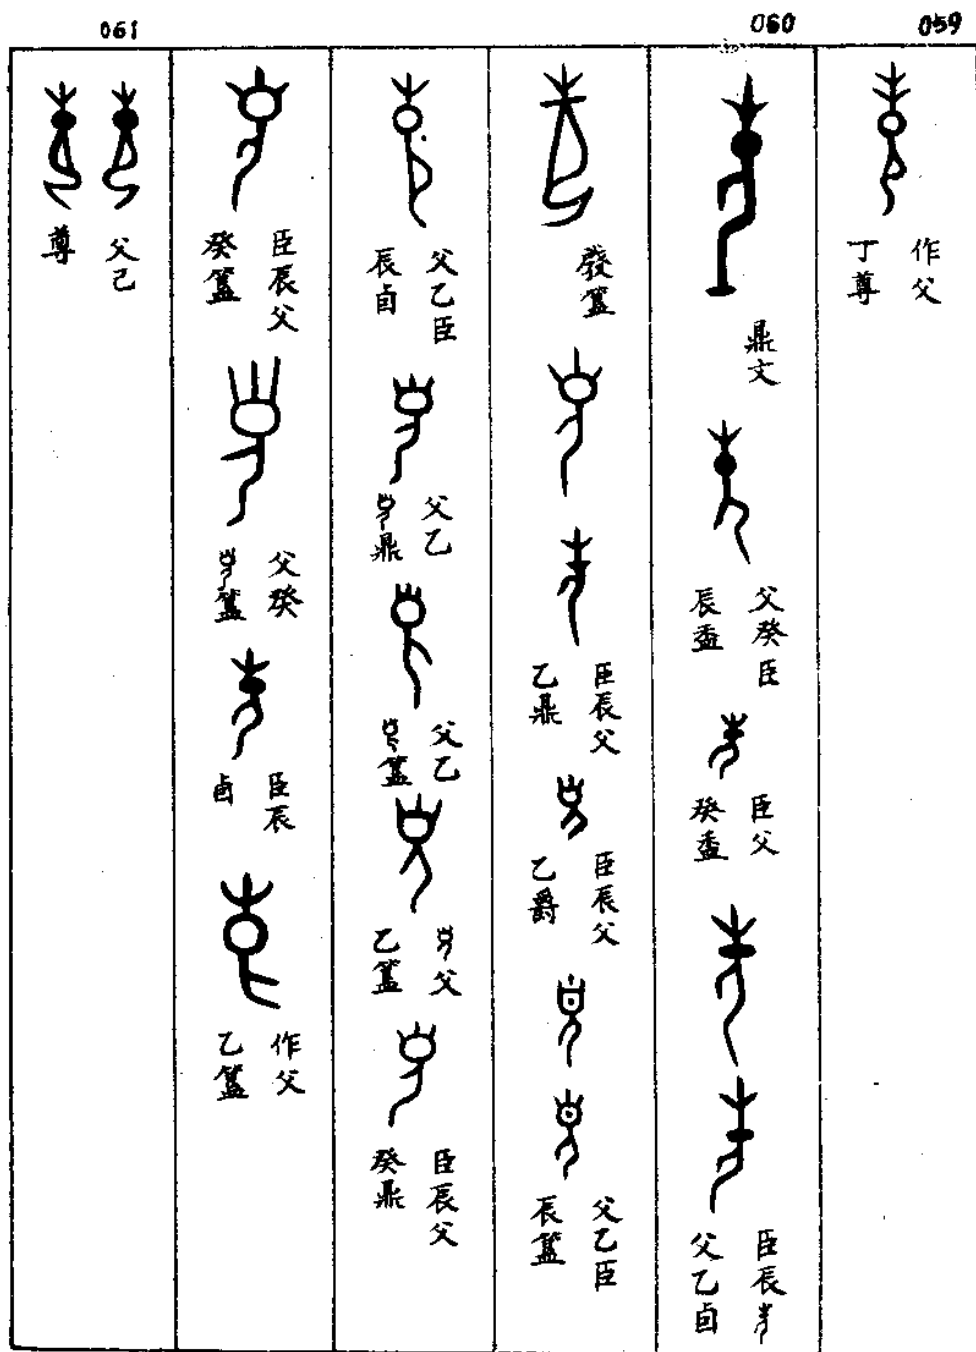 059
作父
丁尊
060
鼎文
父癸臣
辰盉
臣父
癸盉
臣辰
父乙卣
發簋
臣辰父
乙鼎
臣辰父
乙爵
父乙臣
辰簋
父乙臣
辰卣
父乙
鼎
父乙
簋
父
乙簋
臣辰父
癸鼎
臣辰父
癸簋
父癸
簋
臣辰
卣
作父
乙簋
061
父己
尊